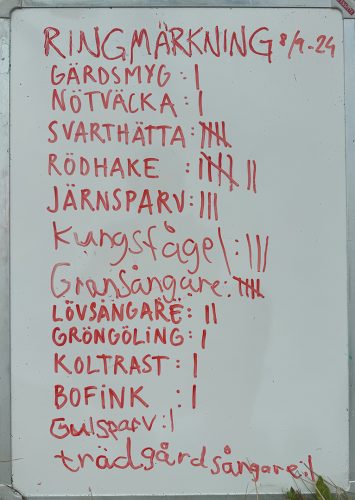 RINGMÄRKNING 8/9-24
GÄRDSMYG : |
NÖTVÄCKA : |
SVARTHÄTTA: ||||
RÖDHAKE : |||| ||
JÄRNSPARV: |||
Kungsfågel: |||
Gransångare: ||||
LÖVSÄNGARE: ||
GRÖNGÖLING: |
KOLTRAST: |
BOFINK : |
Gulsparv: |
trädgårdsångare: |